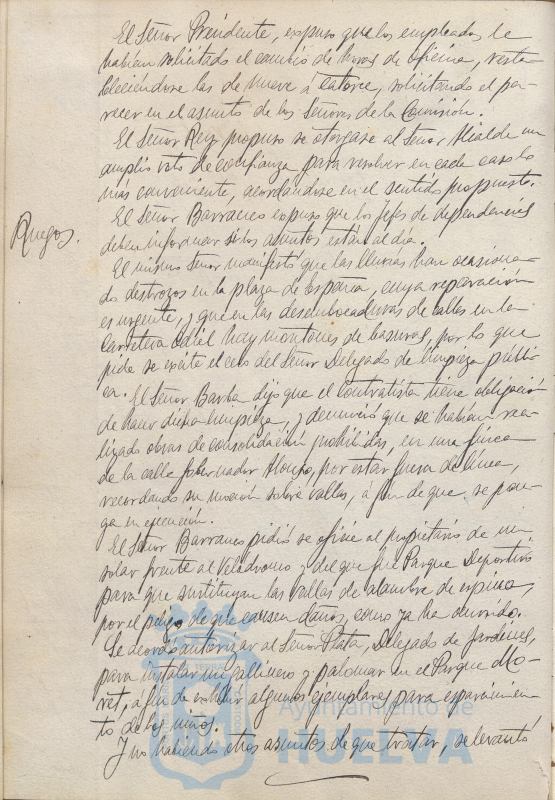 El Señor Presidente, expuso que los empleados le
habían solicitado el cambio de horas de oficina, resta-
bleciéndose las de nueve á catorce, solicitando el pa-
recer en el asunto de los Señores de la Comisión.
El Señor Rey propuso se otorgase al Señor Alcalde un
amplio voto de confianza para resolver en cada caso lo
más conveniente, acordándose en el sentido propuesto.
Ruegos.
El Señor Barranco expuso que los Jefes de dependencias
deben informar si los asuntos están al día.
El mismo Señor manifestó que las lluvias han ocasiona-
do destrozos en la plaza de España, cuya reparación
es urgente, y que en las desembocaduras de calles en la
carretera Odiel hay montones de basuras, por lo que
pide se excite el celo del Señor Delegado de limpieza públi-
ca. El Señor Barba dijo que el contratista tiene obligación
de hacer dicha limpieza, y denunció que se habían rea-
lizado obras de consolidación prohibidas, en una finca
de la calle Gobernador Alonso, por estar fuera de línea,
recordando su moción sobre vallas, á fin de que se pon-
ga en ejecución.
El Señor Barranco pidió se oficie al propietario de un
solar frente al Velódromo y del que fué Parque Deportivo
para que sustituyan las vallas de alambre de espinos,
por el peligro de que causen daños, como ya ha ocurrido.
Se acordó autorizar al Señor Plata, Delegado de Jardines,
para instalar un gallinero y palomar en el Parque Mo-
ret, a fin de exhibir algunos ejemplares para esparcimien-
to de los niños.
Y no habiendo otros asuntos de que tratar, se levantó
Ayuntamiento de
HUELVA